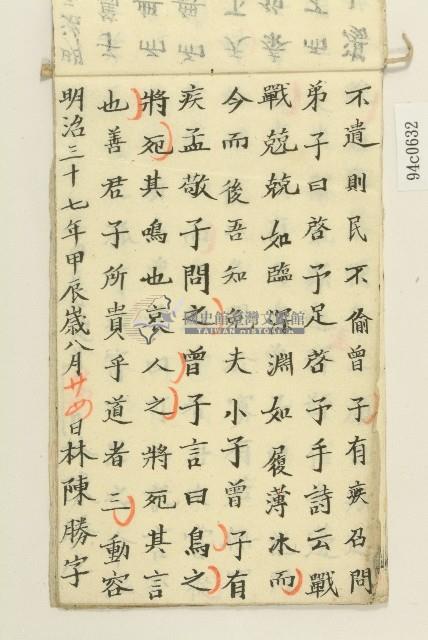 不遺則民不偷曾子有疾召問
弟子曰啓予足啓予手詩云戰
戰兢兢如臨深淵如履薄冰而
今而後吾知免夫小子曾子有
疾孟敬子問之曾子言曰鳥之
將死其鳴也哀人之將死其言
也善君子所貴乎道者三動容
明治三十七年甲辰歲八月廿四日林陳勝字
國史館臺灣文獻館
TAIWAN HISTORICA
94c0632